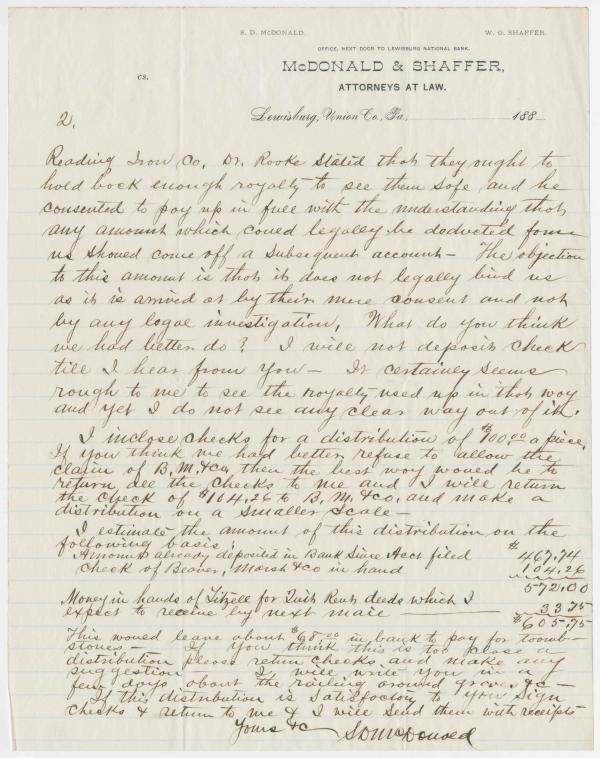 S. D. McDONALD. W. O. SHAFFER.
OFFICE, NEXT DOOR TO LEWISBURG NATIONAL BANK.
vs. McDONALD & SHAFFER,
ATTORNEYS AT LAW.
2. Lewisburg, Union Co., Pa. 188
Reading Iron Co. Dr. Rooke stated that they ought to
hold back enough royalty to see them safe and he
consented to pay up in full with the understanding that
any amount which could legally be deducted from
us should come off a subsequent account — The objection
to this amount is that it does not legally bind us
as it is arrived at by their mere consent and not
by any legal investigation. What do you think
we had better do? I will not deposit check
till I hear from you — It certainly seems
rough to me to see the royalty used up in that way
and yet I do not see any clear way out of it.
I inclose checks for a distribution of $100.00 a piece.
If you think we had better refuse to allow the
claim of B. M. & Co, then the best way would be to
return all the checks to me and I will return
the check of $104.26 to B. M. & Co. and make a
distribution on a smaller scale —
I estimate the amount of this distribution on the
following basis:
Amount already deposited in Bank since Acct filed $467.74
Check of Beaver, Marsh & Co in hand 104.26
572.00
Money in hands of for Quit Rent deeds which I
expect to receive by next mail 33.75
$605.75
This would leave about $68.00 in bank to pay for tomb-
stones — If you think this is too close a
distribution please return checks and make any
suggestion I will write you in a
few days about the railing around graves &c —
If this distribution is satisfactory to you sign
checks & return to me & I will send them with receipts
Yours &c S D McDonald